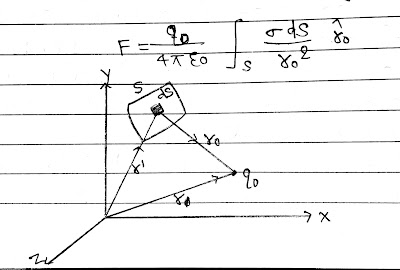 F = q₀ / 4πε₀ ∫ₛ σ dS / r₀² r̂₀
Y
S
dS
r₀
r'
q₀
r₀
X
Z